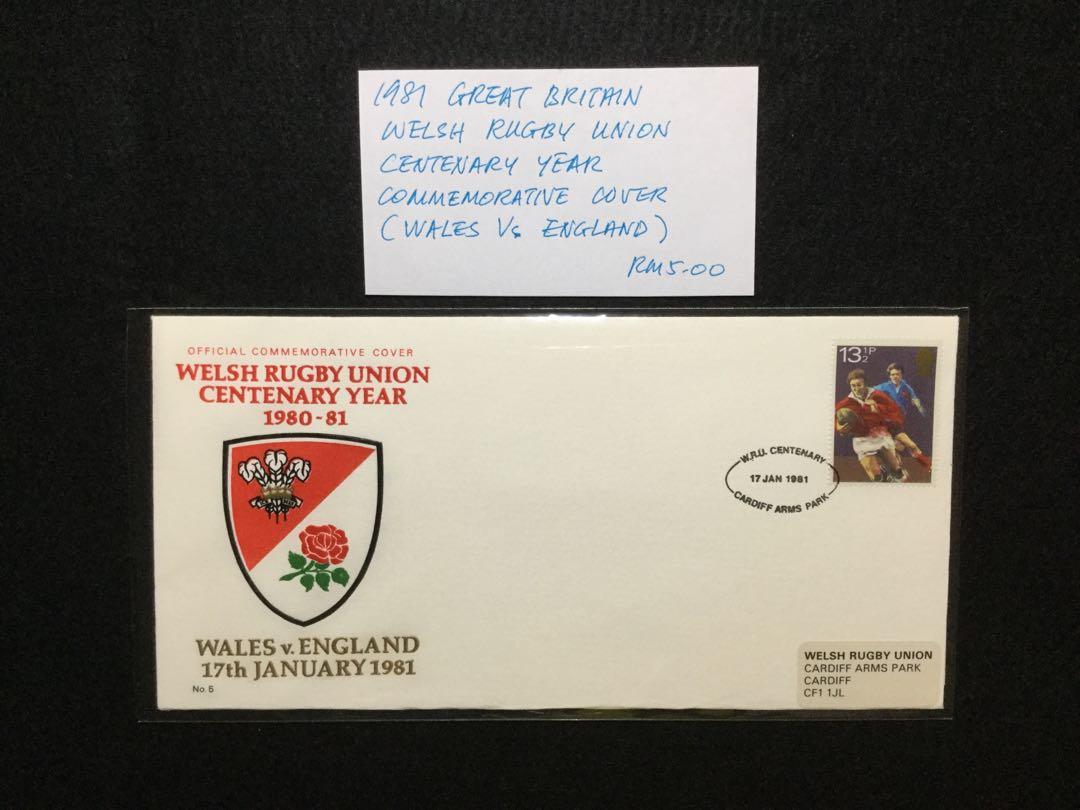 1981 GREAT BRITAIN
WELSH RUGBY UNION
CENTENARY YEAR
COMMEMORATIVE COVER
(WALES Vs ENGLAND)
RM5-00
OFFICIAL COMMEMORATIVE COVER
WELSH RUGBY UNION
CENTENARY YEAR
1980-81
WALES v. ENGLAND
17th JANUARY 1981
No. 5
13½P
W.R.U. CENTENARY
17 JAN 1981
CARDIFF ARMS PARK
WELSH RUGBY UNION
CARDIFF ARMS PARK
CARDIFF
CF1 1JL